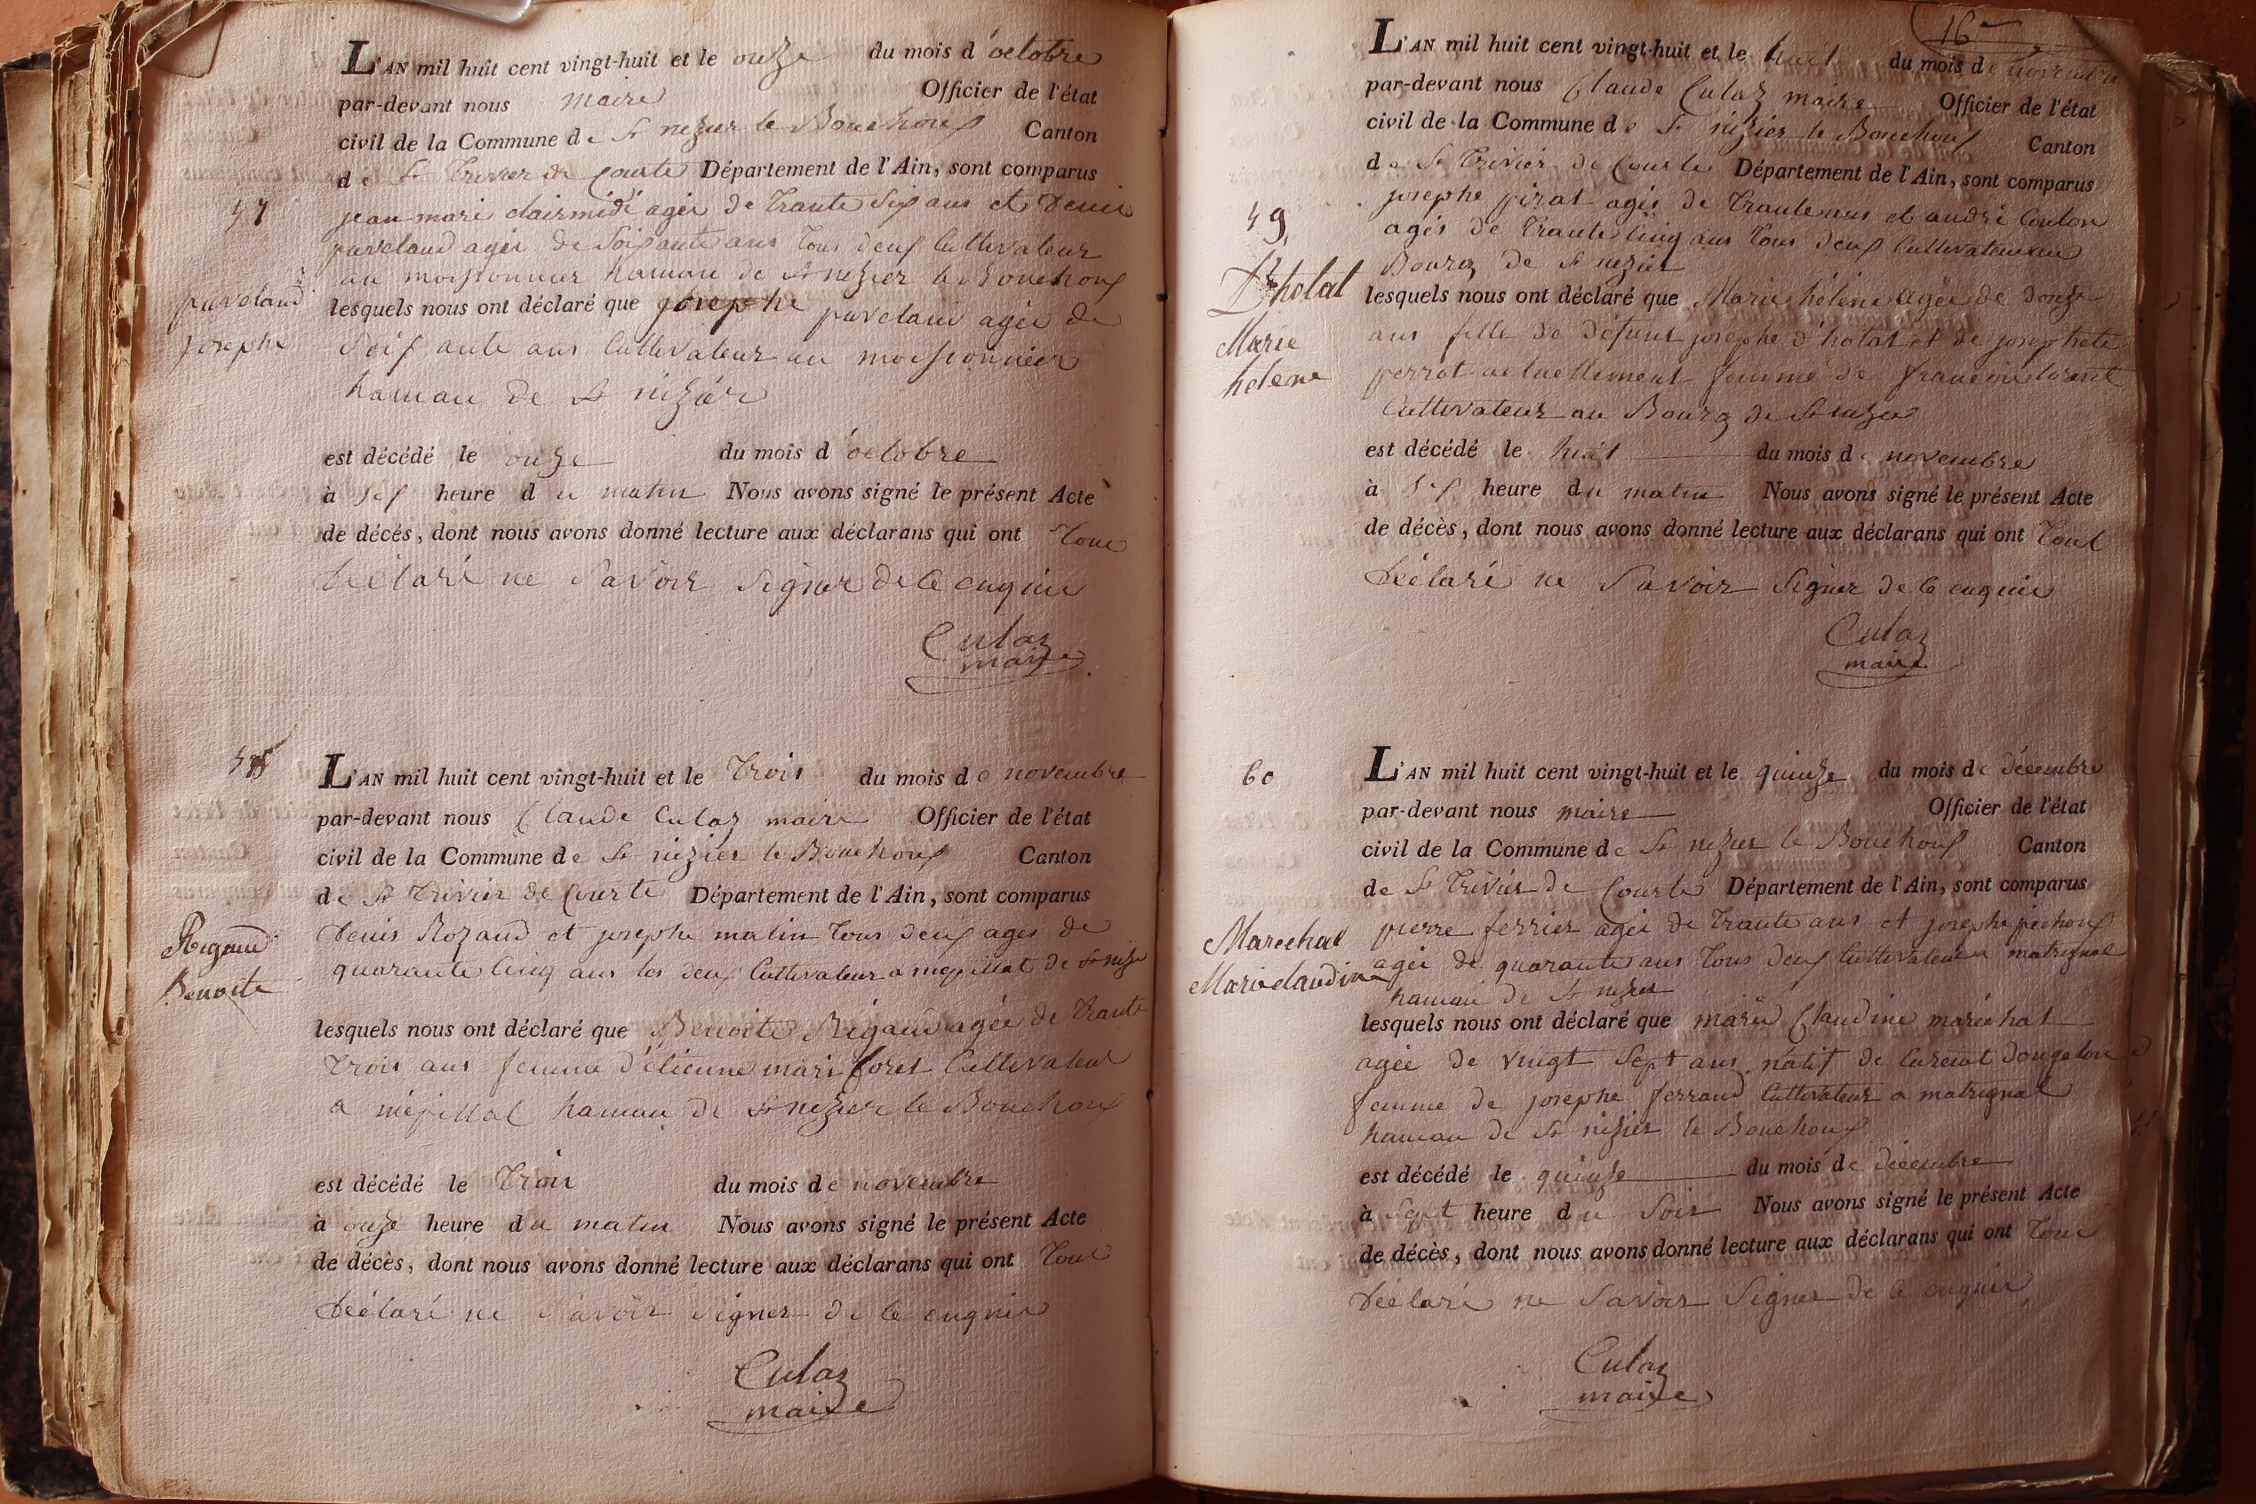 L'AN mil huit cent vingt-huit et le onze du mois d'octobre
par-devant nous maire Officier de l'état
civil de la Commune de St nizier le Bouchoux Canton
de St Trivier de Courte Département de l'Ain, sont comparus
57
jean mari clairmidi agée de Trante Six ans et Denis
paveland agée de Soixante ans Tous deux Cultivateur
au moissonnier hamau de St nizier le Bouchoux
paveland
josephe
lesquels nous ont déclaré que josephe paveland agée de
Soixante ans Cultivateur au moissonnier
hamau de St nizier
est décédé le onze du mois d'octobre
à six heure du matin Nous avons signé le présent Acte
de décès, dont nous avons donné lecture aux déclarans qui ont Tous
Déclaré ne Savoir Signer de ce enquis
Culaz
maire
58
L'AN mil huit cent vingt-huit et le Trois du mois de novembre
par-devant nous Claude Culaz maire Officier de l'état
civil de la Commune de St nizier le Bouchoux Canton
de St Trivier de Courte Département de l'Ain, sont comparus
Denis Rozand et josephe matin Tous deux ages de
quarante Cinq ans les deux Cultivateur a mépillat de St nizie
Rigaud
Benoite
lesquels nous ont déclaré que Benoite Rigaud agée de Trante
Trois ans femme d'étienne mari foret Cultivateur
a mépillat hamau de St nizier le Bouchoux
est décédé le Trois du mois de novembre
à onze heure du matin Nous avons signé le présent Acte
de décès, dont nous avons donné lecture aux déclarans qui ont Tout
Déclaré ne Savoir Signer de ce enquis
Culaz
maire
16
L'AN mil huit cent vingt-huit et le huit du mois de novembre
par-devant nous Claude Culaz maire Officier de l'état
civil de la Commune de St nizier le Bouchoux Canton
de St Trivier de Courte Département de l'Ain, sont comparus
59
josephe pirat agés de Trante ans et andré Couton
agés de Trante Cinq ans Tous deux Cultivateur au
Bourg de St nizier
D'holat
Marie
helene
lesquels nous ont déclaré que Marie héléne agée de Douze
ans fille de Défunt josephe d'holat et de josephete
perrot actuellement femme de francois
Cultivateur au Bourg de St nizier
est décédé le huit du mois de novembre
à six heure du matin Nous avons signé le présent Acte
de décès, dont nous avons donné lecture aux déclarans qui ont Tout
Déclaré ne Savoir Signer de ce enquis
Culaz
maire
60
L'AN mil huit cent vingt-huit et le quinze du mois de décembre
par-devant nous maire Officier de l'état
civil de la Commune de St nizier le Bouchoux Canton
de St Trivier de Courte Département de l'Ain, sont comparus
pierre ferrier agée de Trante ans et josephe pichoux
agée de quarante ans Tous deux Cultivateur a matrignat
hamau de St nizier
Marechal
Marie claudine
lesquels nous ont déclaré que marie Claudine maréchat
agée de vingt Sept ans natif de Curciat dongalon
femme de josephe ferrand Cultivateur a matrignat
hamau de St nizier le Bouchoux
est décédé le quinze du mois de décembre
à Sept heure du Soir Nous avons signé le présent Acte
de décès, dont nous avons donné lecture aux déclarans qui ont Tous
Déclaré ne Savoir Signer de ce enquis
Culaz
maire